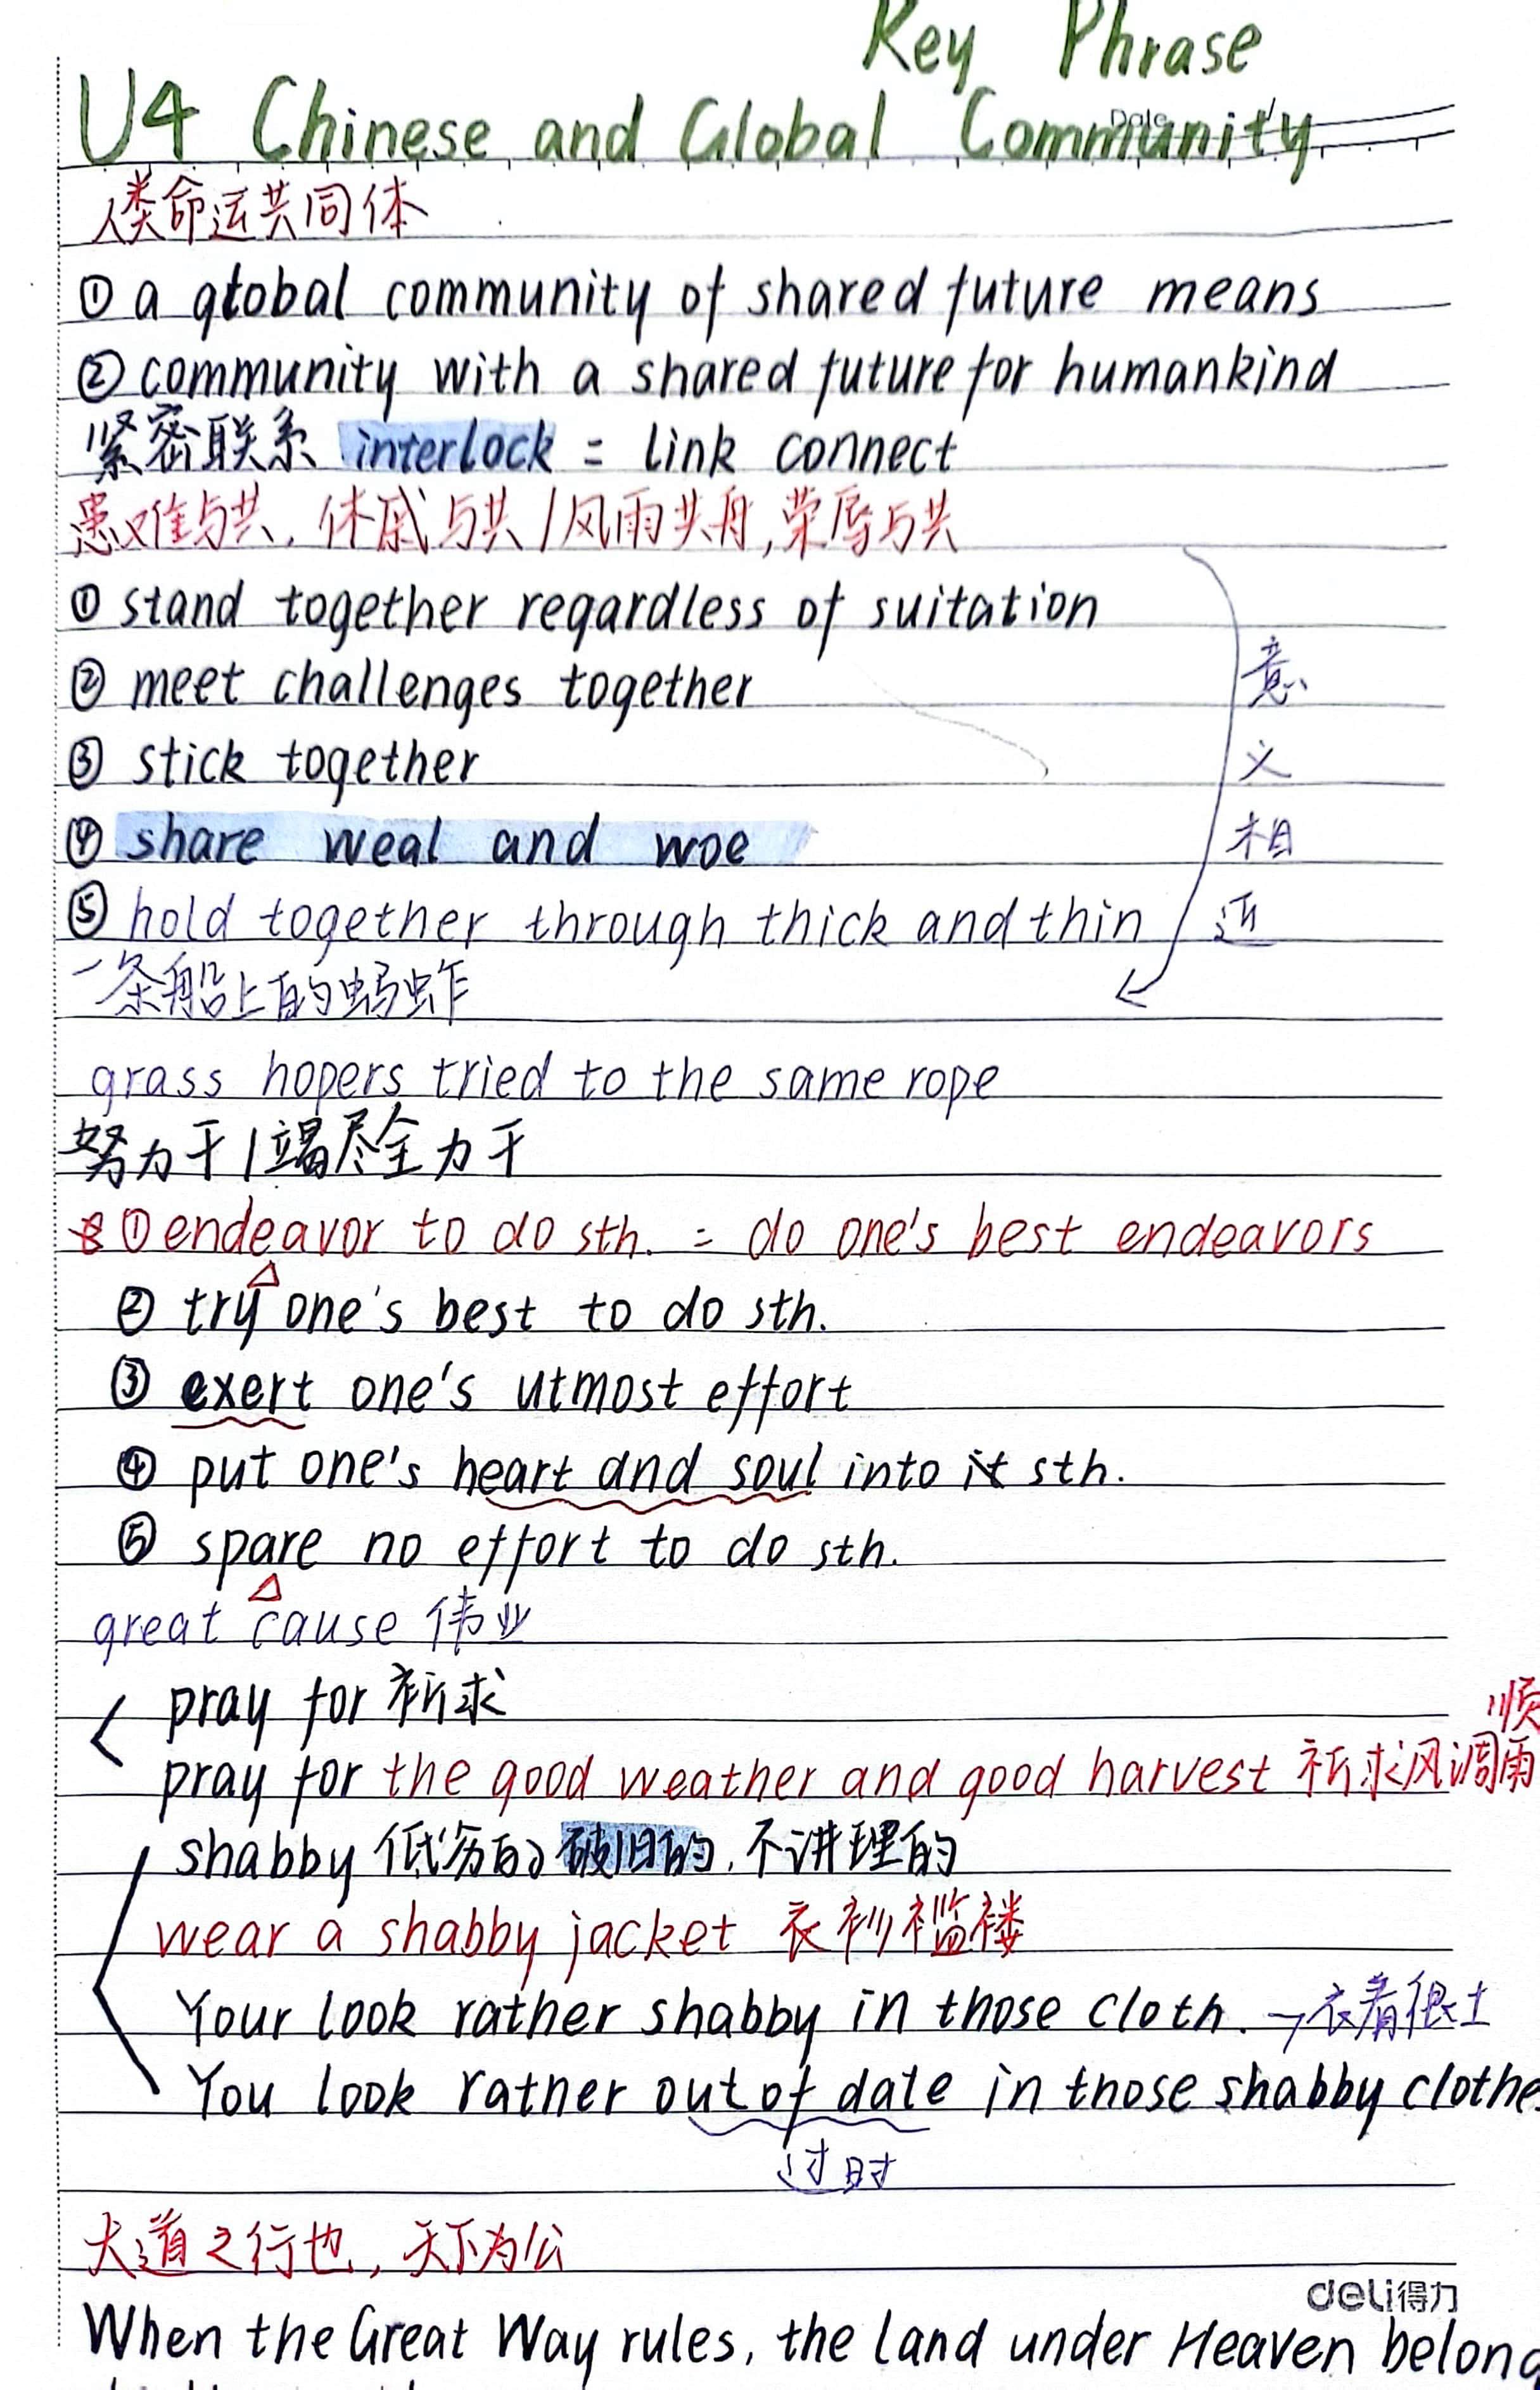 Key Phrase
Date
U4 Chinese and Global Community
人类命运共同体
① a global community of shared future means
② community with a shared future for humankind
紧密联系 interlock = link connect
患难与共, 休戚与共 / 风雨共舟, 荣辱与共
① stand together regardless of suitation
② meet challenges together
③ stick together
④ share weal and woe
⑤ hold together through thick and thin
意义相近
一条船上的蚂蚱
grass hopers tried to the same rope
努力干 / 竭尽全力干
① endeavor to do sth. = do one's best endeavors
② try one's best to do sth.
③ exert one's utmost effort
④ put one's heart and soul into sth.
⑤ spare no effort to do sth.
great cause 伟业
pray for 祈求
pray for the good weather and good harvest 祈求风调雨顺
shabby 低劣的 破旧的, 不讲理的
wear a shabby jacket 衣衫褴褛
Your look rather shabby in those cloth. → 衣着很土
You look rather out of date in those shabby clothe
过时
大道之行也, 天下为公
deli得力
When the Great Way rules, the land under Heaven belong